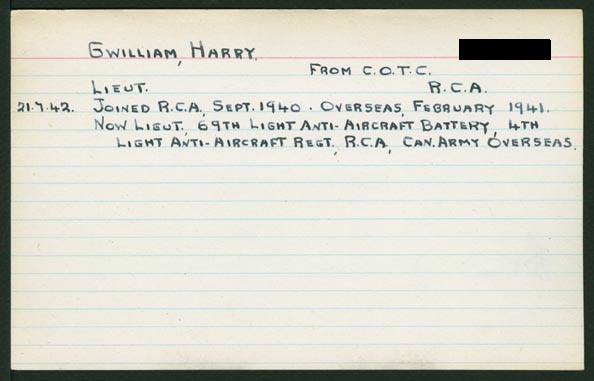 GWILLIAM, HARRY.
FROM C.O.T.C.
LIEUT. R.C.A.
21.7.42. JOINED R.C.A, SEPT. 1940. OVERSEAS, FEBRUARY 1941.
NOW LIEUT, 69TH LIGHT ANTI-AIRCRAFT BATTERY, 4TH
LIGHT ANTI-AIRCRAFT REGT, R.C.A, CAN. ARMY OVERSEAS.